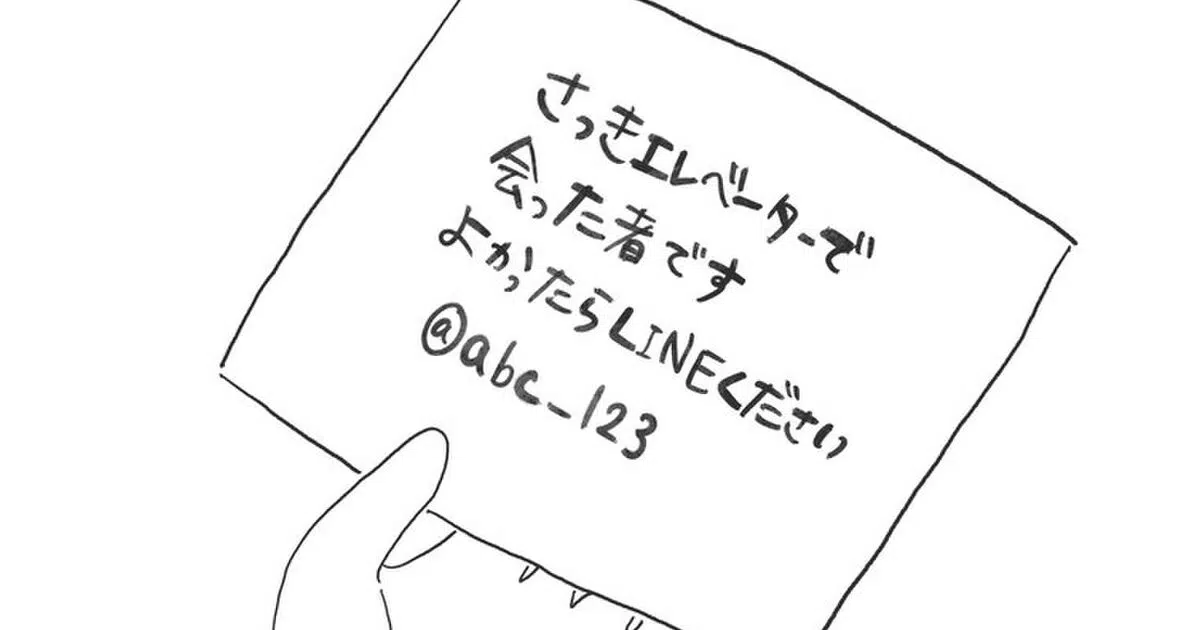 さっきエレベーターで
会った者です
よかったらLINEください
@abc_123